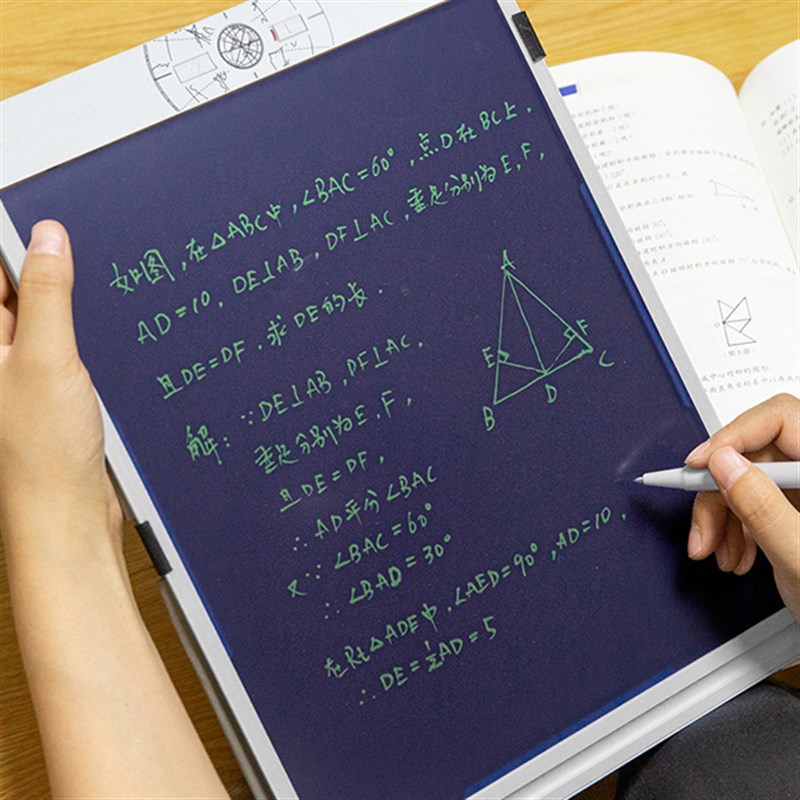 如图,在△ABC中,∠BAC=60°,点D在BC上,
AD=10,DE⊥AB,DF⊥AC,垂足分别为E,F,
且DE=DF,求DE的长.
A
E
F
B
D
C
解:∵DE⊥AB,DF⊥AC,
垂足分别为E,F,
且DE=DF,
∴AD平分∠BAC
又∵∠BAC=60°
∴∠BAD=30°
在Rt△ADE中,∠AED=90°,AD=10,
∴DE=½AD=5